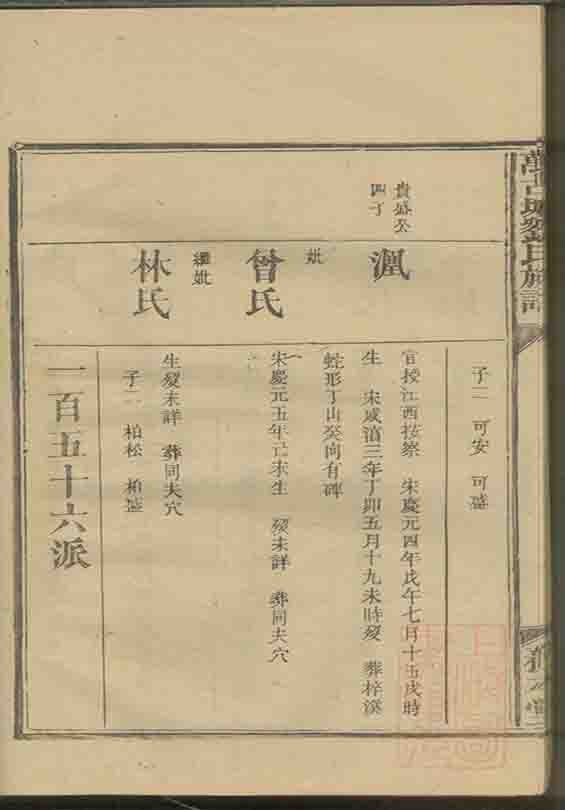 族譜
子二 可安 可盛
貴盛公
四子
官授江西按察 宋慶元四年戊午七月十五戌時
生 宋咸淳三年丁卯五月十九未時歿 葬梓溪
蛇形丁山癸向有碑
妣
曾氏
宋慶元五年己未生 歿未詳 葬同夫穴
繼妣
林氏
生歿未詳 葬同夫穴
子二 柏松 柏盛
一百五十六派